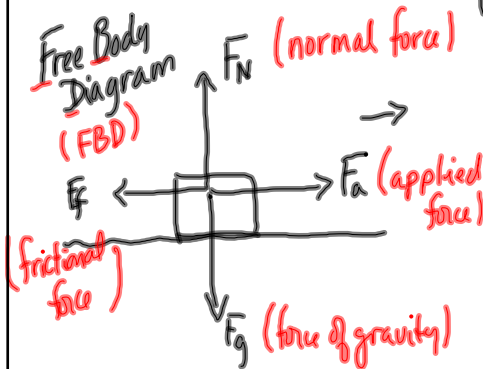 Free Body
Diagram
(FBD)
F_N (normal force)
F_f
F_a (applied
force)
(frictional
force)
F_g (force of gravity)